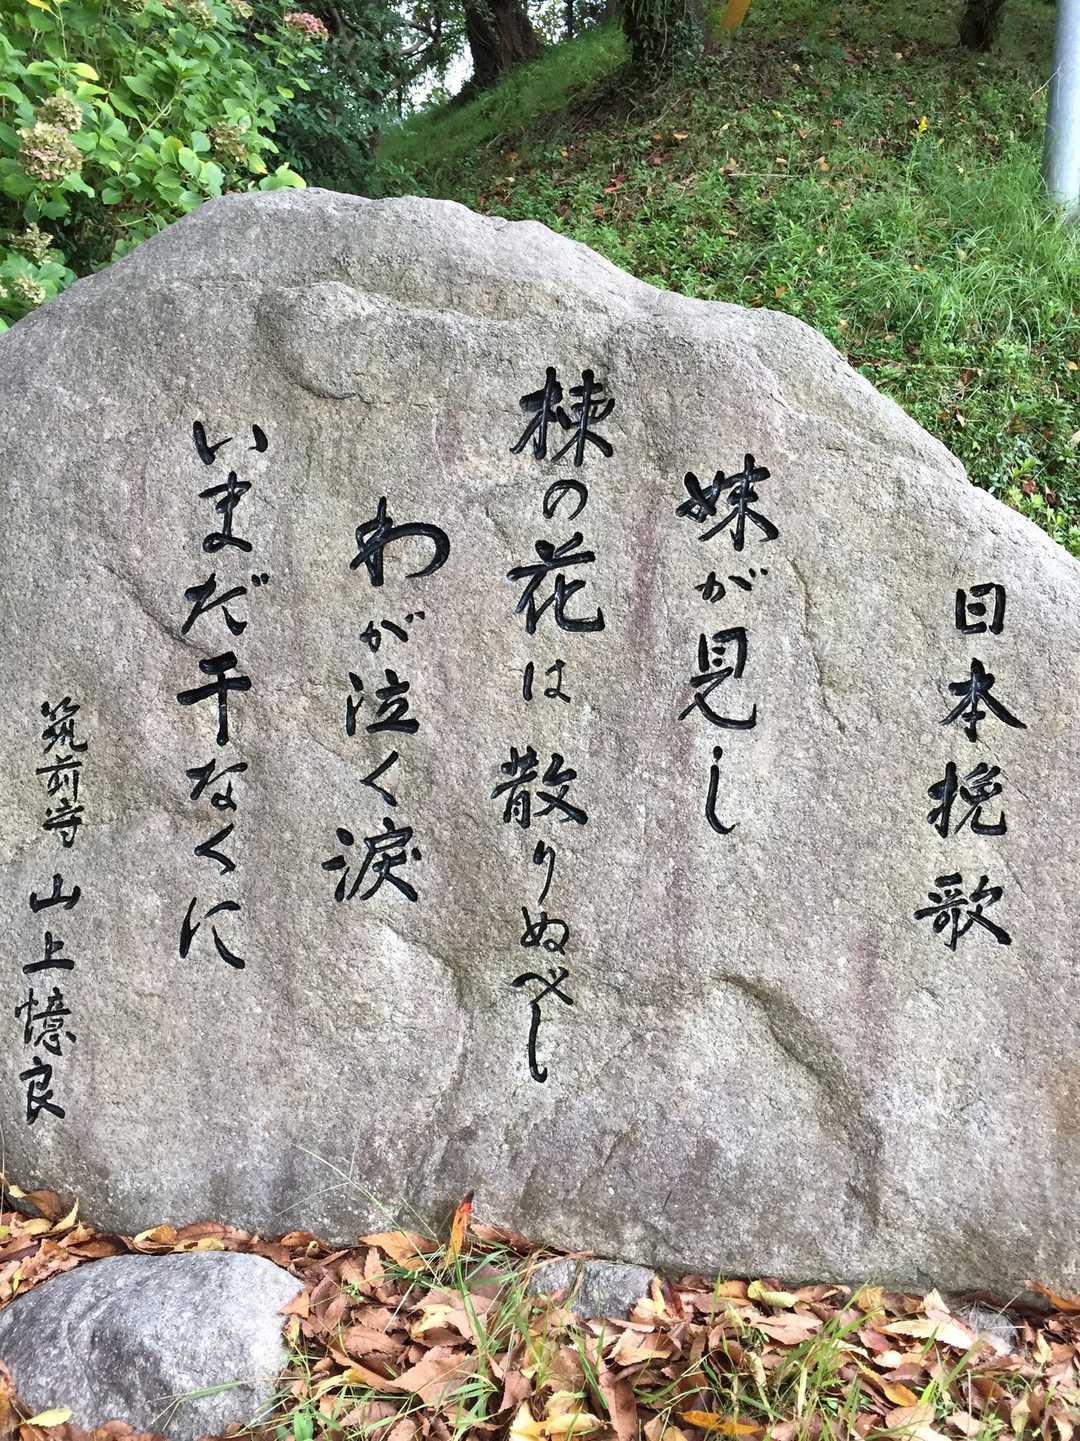 日本挽歌
妹が見し
楝の花は散りぬべし
わが泣く涙
いまだ干なくに
筑前守 山上憶良